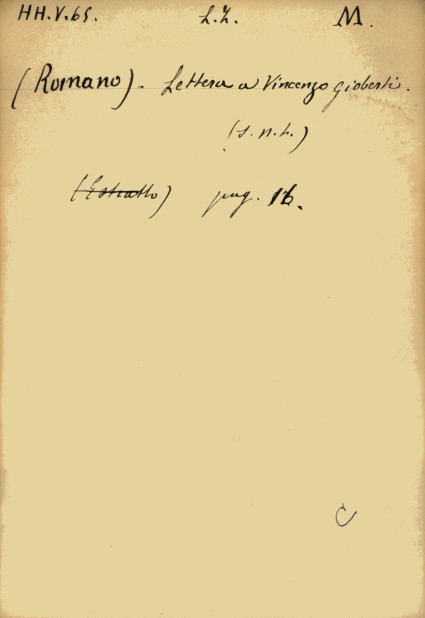 HH.V.65. L.Z. M.
(Romano). Lettera a Vincenzo Gioberti.
(s. n. t.)
(Estratto) pag. 16.
C